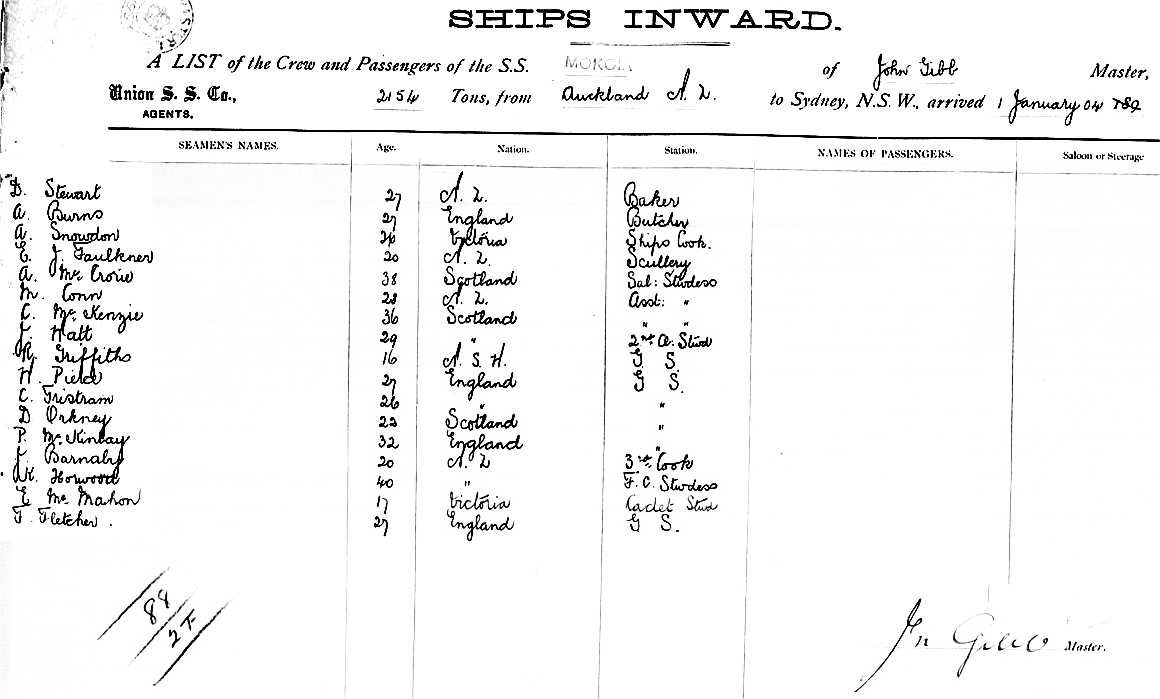 SHIPS INWARD.
A LIST of the Crew and Passengers of the S.S. MOKOIA of John Gibb Master,
Union S. S. Co., AGENTS. 2154 Tons, from Auckland N. Z. to Sydney, N.S.W., arrived 1 January 04
SEAMEN'S NAMES. Age. Nation. Station. NAMES OF PASSENGERS. Saloon or Steerage
D. Stewart 27 N. Z. Baker
A. Burns 27 England Butcher
A. Snowdon 26 Victoria Ships Cook.
E. J. Faulkner 20 N. Z. Scullery
A. Mc Crorie 38 Scotland Sal: Stwdess
M. Conn 28 N. Z. Asst: "
C. Mc Kenzie 36 Scotland " "
J. Watt 29 " 2nd A. Stwd
R. Griffiths 16 N. S. W. G S.
H. Pierce 27 England G S.
C. Tristram 26 " "
D Orkney 22 Scotland "
P. McKinlay 32 England "
J. Barnaby 20 N. Z 3rd Cook
K. Horwood 40 " F. C. Stwdess
E Mc Mahon 17 Victoria Cadet Stwd
F. Fletcher. 27 England G S.
88/2F
Jn Gibb Master.